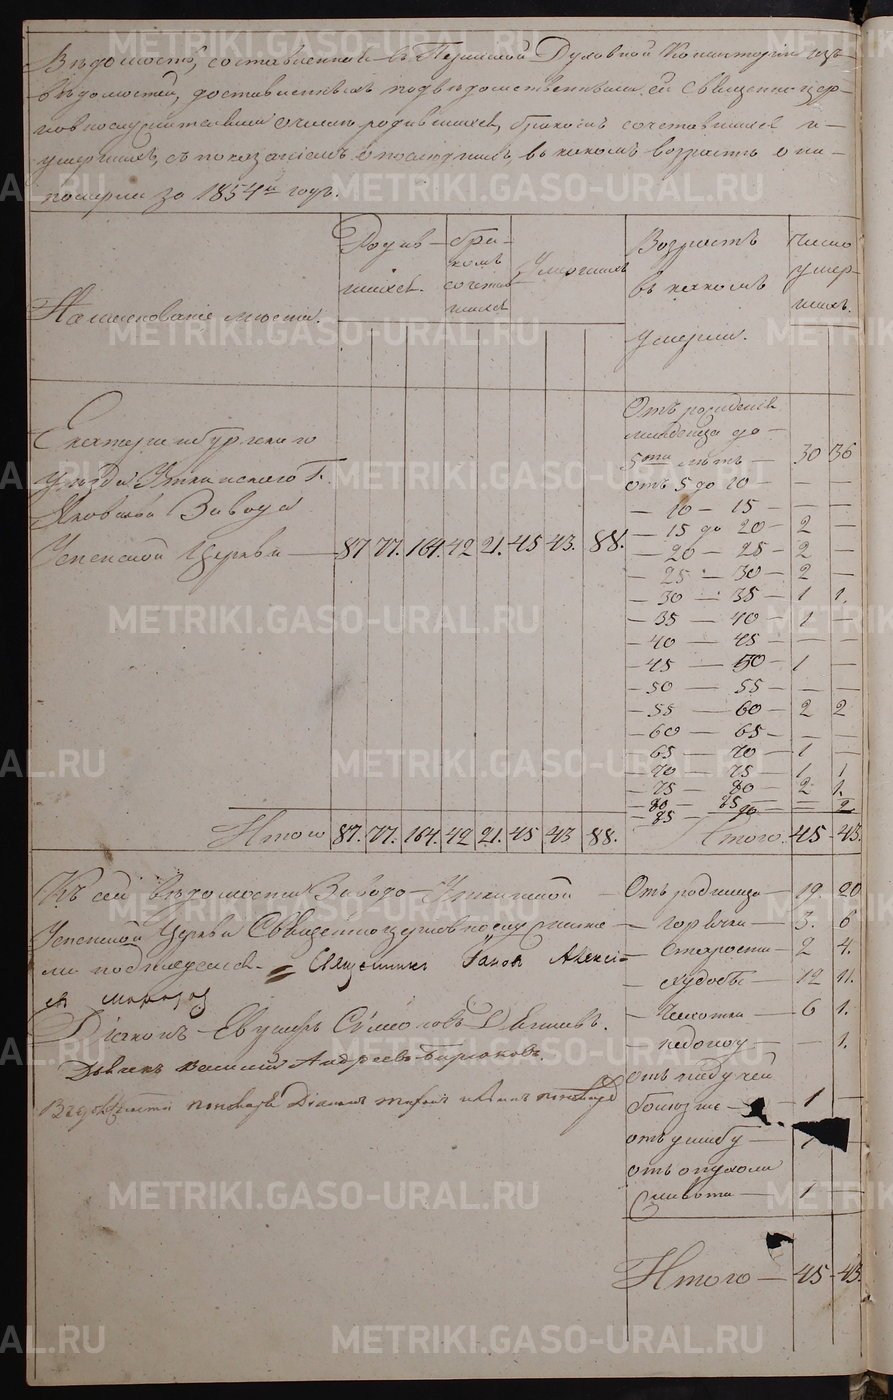 Ведомость, составленная въ Пермской Духовной Консисторіи изъ
ведомостей, доставленныхъ подведомственными ей Священноцер-
ковнослужителями о числе родившихся, бракомъ сочетавшихся и
умершихъ, съ показаніемъ о последнихъ, въ какомъ возрасте они
померли за 1854й годъ.
Наименованіе места.
Родив-
шихся.
Бра-
комъ
сочетав-
шихся
Умершихъ
Возрастъ
въ какомъ
умерли.
Число
умер-
шихъ.
Екатеринбургскаго
уезда Уткинскаго Г.
Яковлева Завода
Успенской Церкви — 87. 77. 164. 42 21. 45 43. 88.
Отъ рожденія
младенца до —
5ти летъ — 30 36
отъ 5 до 10 — — —
— 10 — 15 — — —
— 15 до 20 — 2 —
— 20 — 25 — 2 —
— 25 — 30 — 2 —
— 30 — 35 — 1 1.
— 35 — 40 — 1 —
— 40 — 45 — — —
— 45 — 50 — 1 —
— 50 — 55 — — —
— 55 — 60 — 2 2
— 60 — 65 — — —
65 — 70 — 1 —
— 70 — 75 — 1 1
— 75 — 80 — 2 1.
— 80 — 85 — — 2
— 85 — 90
Итого 87. 77. 164. 42 21. 45 43 88.
Итого. 45 - 43.
Къ сей ведомости Заводо-Уткинской
Успенской Церкви Священноцерковнослужите-
ли подписуемся. Священникъ Іаковъ Алексі-
Діаконъ
Дьячекъ Василій Андреевъ Бирюковъ.
Отъ родимца — 19. 20
— горячки — 3. 6
— Старости — 2 4.
— худобы — 12 11.
— Чахотки — 6 1.
— — 1.
отъ падучей
болезни — 1 —
отъ ушибу — 1
отъ опухоли
живота — 1 —
Итого — 45 - 43.
METRIKI.GASO-URAL.RU